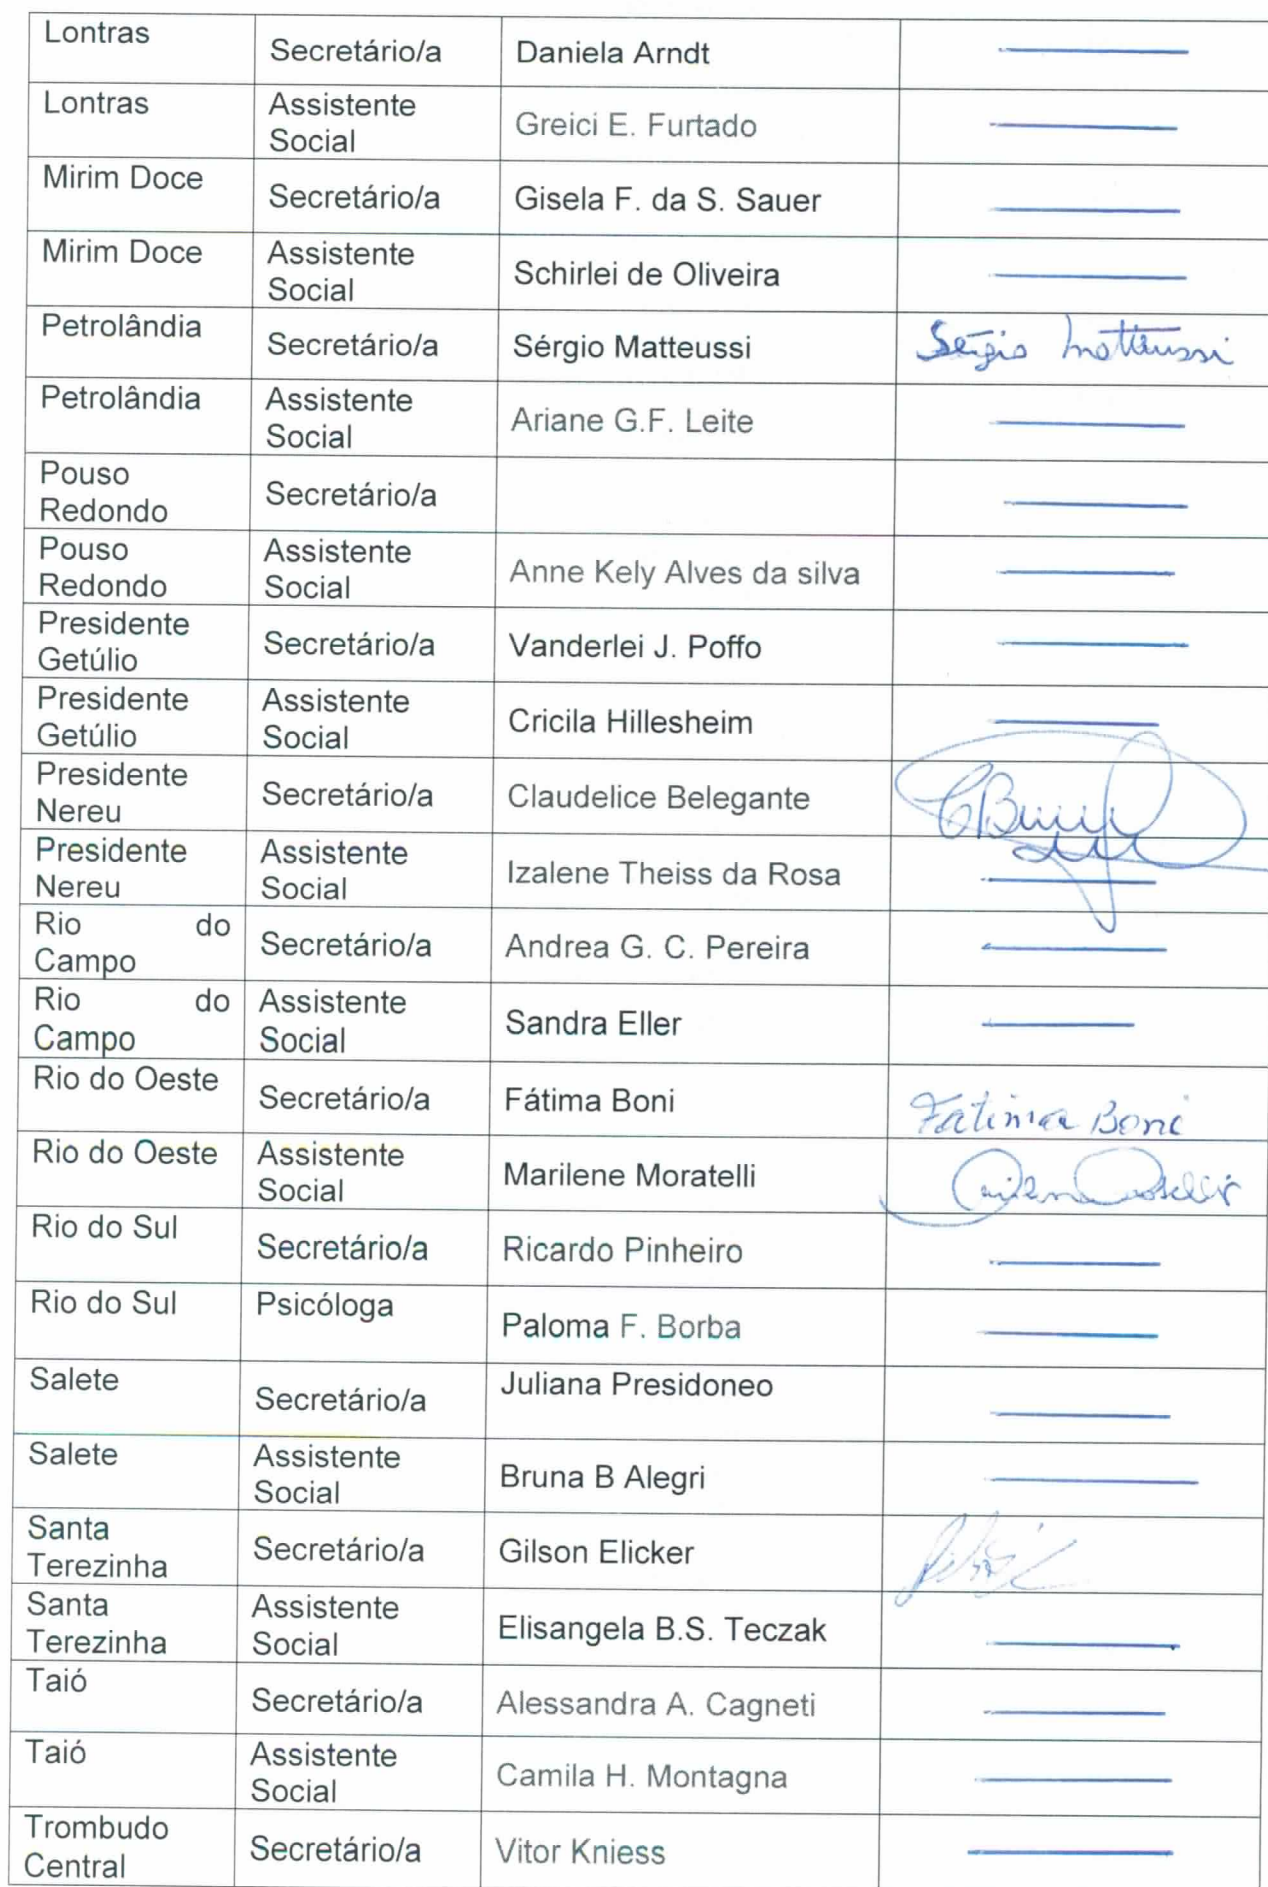 Lontras Secretário/a Daniela Arndt
Lontras Assistente Social Greici E. Furtado
Mirim Doce Secretário/a Gisela F. da S. Sauer
Mirim Doce Assistente Social Schirlei de Oliveira
Petrolândia Secretário/a Sérgio Matteussi Sérgio Matteussi
Petrolândia Assistente Social Ariane G.F. Leite
Pouso Redondo Secretário/a
Pouso Redondo Assistente Social Anne Kely Alves da silva
Presidente Getúlio Secretário/a Vanderlei J. Poffo
Presidente Getúlio Assistente Social Cricila Hillesheim
Presidente Nereu Secretário/a Claudelice Belegante
Presidente Nereu Assistente Social Izalene Theiss da Rosa
Rio do Campo Secretário/a Andrea G. C. Pereira
Rio do Campo Assistente Social Sandra Eller
Rio do Oeste Secretário/a Fátima Boni Fatima Boni
Rio do Oeste Assistente Social Marilene Moratelli
Rio do Sul Secretário/a Ricardo Pinheiro
Rio do Sul Psicóloga Paloma F. Borba
Salete Secretário/a Juliana Presidoneo
Salete Assistente Social Bruna B Alegri
Santa Terezinha Secretário/a Gilson Elicker
Santa Terezinha Assistente Social Elisangela B.S. Teczak
Taió Secretário/a Alessandra A. Cagneti
Taió Assistente Social Camila H. Montagna
Trombudo Central Secretário/a Vitor Kniess